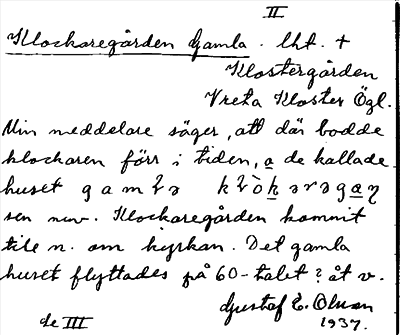 II
Klockaregården Gamla. lht. +
Klostergården
Vreta Kloster Ögl.
Min meddelare säger, att där bodde
klockaren förr i tiden, a de kallade
huset
sen nuv. Klockaregården kommit
till n. om kyrkan. Det gamla
huset flyttades på 60-talet? åt v.
Gustaf E. Olsson
de III 1937.